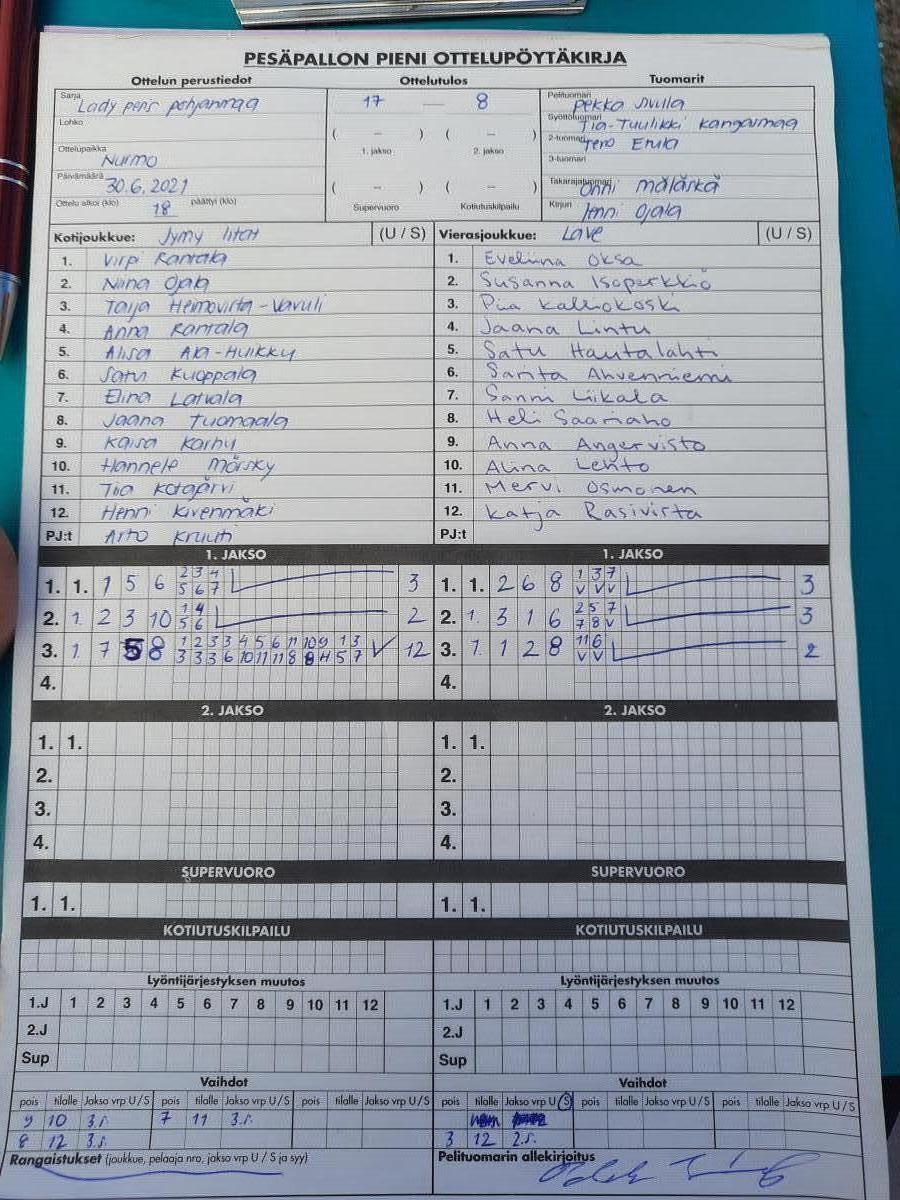 PESÄPALLON PIENI OTTELUPÖYTÄKIRJA
Ottelun perustiedot Ottelutulos Tuomarit
Sarja Lady pesis pohjanmaa 17 — 8 Pelituomari Pekka
Lohko ( – ) ( – ) Syöttötuomari Tiia-Tuulikki Kangasmaa
1. jakso 2. jakso 2-tuomari Tero Etula
Ottelupaikka Nurmo 3-tuomari
Päivämäärä 30.6.2021 ( – ) ( – ) Takarajatuomari Onni Mälärkä
Ottelu alkoi (klo) 18 päättyi (klo) Supervuoro Kotiutuskilpailu Kirjuri Jenni Ojala
Kotijoukkue: Jymy (U / S) Vierasjoukkue: Lave (U / S)
1. Virpi Rantala 1. Eveliina Oksa
2. Niina Ojala 2. Susanna Isoperkkiö
3. Taija Heimovirta-Vavuli 3. Piia Kalliokoski
4. Anna Rantala 4. Jaana Lintu
5. Alisa Ala-Huikku 5. Satu Hautalahti
6. Satu Kuoppala 6. Santa Ahvenniemi
7. Elina Latvala 7. Sanni Liikala
8. Jaana Tuomaala 8. Heli Saariaho
9. Kaisa Karhu 9. Anna Angervisto
10. Hannele Märsky 10. Alina Lehto
11. Tiia Kotajärvi 11. Mervi Osmonen
12. Henni Kivenmäki 12. Katja Rasivirta
PJ:t Arto Kruuti PJ:t
1. JAKSO 1. JAKSO
1. 1. 1 5 6 2 3 4 3 1. 1. 2 6 8 1 3 7 3
5 6 7 V V V
2. 1. 2 3 10 1 4 2 2. 1. 3 1 6 2 5 7 3
5 6 7 8 V
3. 1 7 5 8 1 2 3 3 4 5 6 11 10 9 1 3 V 12 3. 1. 1 2 8 11 6 2
3 3 3 6 10 11 11 8 8 4 5 7 V V
4. 4.
2. JAKSO 2. JAKSO
1. 1. 1. 1.
2. 2.
3. 3.
4. 4.
SUPERVUORO SUPERVUORO
1. 1. 1. 1.
KOTIUTUSKILPAILU KOTIUTUSKILPAILU
Lyöntijärjestyksen muutos Lyöntijärjestyksen muutos
1.J 1 2 3 4 5 6 7 8 9 10 11 12 1.J 1 2 3 4 5 6 7 8 9 10 11 12
2.J 2.J
Sup Sup
Vaihdot Vaihdot
pois tilalle Jakso vrp U / S pois tilalle Jakso vrp U / S pois tilalle Jakso vrp U / S pois tilalle Jakso vrp U / S pois tilalle Jakso vrp U / S pois tilalle Jakso vrp U / S
9 10 3.s. 7 11 3.s.
8 12 3.s. 3 12 2.s.
Rangaistukset (joukkue, pelaaja nro, jakso vrp U / S ja syy) Pelituomarin allekirjoitus